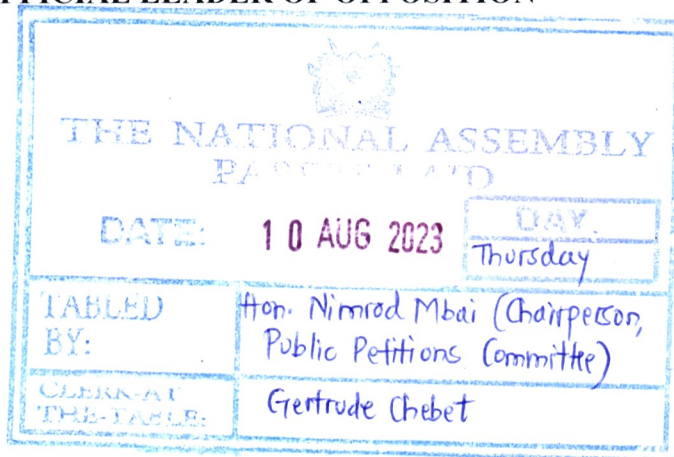 OFFICIAL LEADER OF OPPOSITION
THE NATIONAL ASSEMBLY
PAPERS LAID
DATE: 10 AUG 2023
DAY.
Thursday
TABLED BY:
Hon. Nimrod Mbai (Chairperson,
Public Petitions Committee)
CLERK-AT
THE-TABLE:
Gertrude Chebet